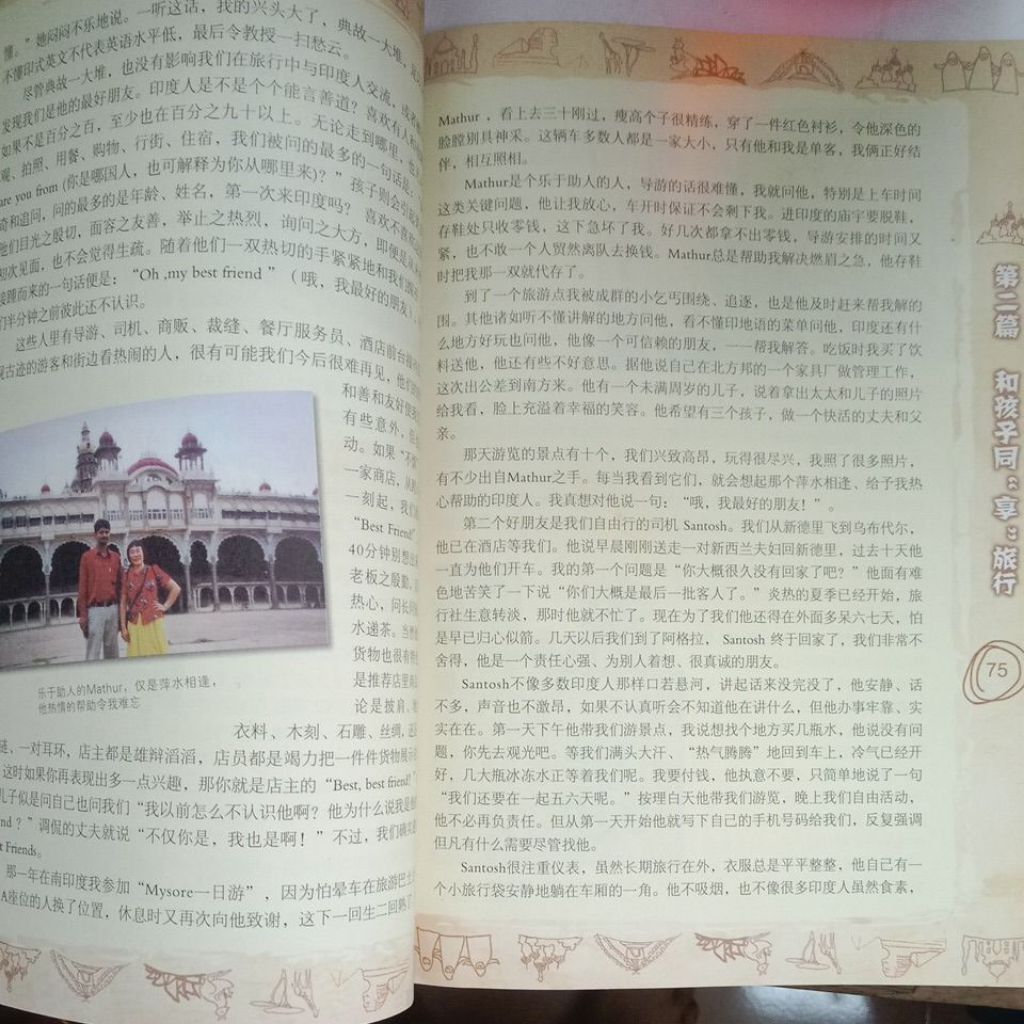 懂。”她闷闷不乐地说。一听这话，我的兴头大了，典故一大堆，
不懂印式英文不代表英语水平低，最后令教授一扫愁云。
尽管典故一大堆，也没有影响我们在旅行中与印度人交流，或
发现我们是他的最好朋友。印度人是不是个个能言善道？喜欢有人和
如果不是百分之百，至少也在百分之九十以上。无论走到哪里，
观、拍照、用餐、购物、行街、住宿，我们被问的最多的一句话是
are you from (你是哪国人，也可解释为你从哪里来)？”孩子则会引起
奇和追问，问的最多的是年龄、姓名，第一次来印度吗？喜欢不喜欢
他们目光之殷切，面容之友善，举止之热烈，询问之大方，即便是
初次见面，也不会觉得生疏。随着他们一双热切的手紧紧地和我们
接踵而来的一句话便是：“Oh ,my best friend ”（哦，我最好的朋友）
们半分钟之前彼此还不认识。
这些人里有导游、司机、商贩、裁缝、餐厅服务员、酒店前台
观古迹的游客和街边看热闹的人，很有可能我们今后很难再见，他们的
和善和友好
有些意外，但
动。如果“不
一家商店，
一刻起，我
“Best Friend”
40分钟别想
老板之殷勤，
热心，问长
水递茶。当
货物也很有
是推荐店里
论是披肩、
乐于助人的Mathur，仅是萍水相逢，
他热情的帮助令我难忘
衣料、木刻、石雕、丝绸，
链、一对耳环，店主都是雄辩滔滔，店员都是竭力把一件件货物展
这时如果你再表现出多一点兴趣，那你就是店主的“Best, best friend!”
儿子似是问自己也问我们“我以前怎么不认识他啊？他为什么说我是
nd？”调侃的丈夫就说“不仅你是，我也是啊！”不过，我们确
t Friends。
那一年在南印度我参加“Mysore一日游”，因为怕晕车在旅游巴士
A座位的人换了位置，休息时又再次向他致谢，这下一回生二回熟
Mathur，看上去三十刚过，瘦高个子很精练，穿了一件红色衬衫，令他深色的
脸膛别具神采。这辆车多数人都是一家大小，只有他和我是单客，我俩正好结
伴，相互照相。
Mathur是个乐于助人的人，导游的话很难懂，我就问他，特别是上车时间
这类关键问题，他让我放心，车开时保证不会剩下我。进印度的庙宇要脱鞋，
存鞋处只收零钱，这下急坏了我。好几次都拿不出零钱，导游安排的时间又
紧，也不敢一个人贸然离队去换钱。Mathur总是帮助我解决燃眉之急，他存鞋
时把我那一双就代存了。
到了一个旅游点我被成群的小乞丐围绕、追逐，也是他及时赶来帮我解的
围。其他诸如听不懂讲解的地方问他，看不懂印地语的菜单问他，印度还有什
么地方好玩也问他，他像一个可信赖的朋友，一一帮我解答。吃饭时我买了饮
料送他，他还有些不好意思。据他说自己在北方邦的一个家具厂做管理工作，
这次出公差到南方来。他有一个未满周岁的儿子，说着拿出太太和儿子的照片
给我看，脸上充溢着幸福的笑容。他希望有三个孩子，做一个快活的丈夫和父
亲。
那天游览的景点有十个，我们兴致高昂，玩得很尽兴，我照了很多照片，
有不少出自Mathur之手。每当我看到它们，就会想起那个萍水相逢、给予我热
心帮助的印度人。我真想对他说一句：“哦，我最好的朋友！”。
第二个好朋友是我们自由行的司机 Santosh。我们从新德里飞到乌布代尔，
他已在酒店等我们。他说早晨刚刚送走一对新西兰夫妇回新德里，过去十天他
一直为他们开车。我的第一个问题是“你大概很久没有回家了吧？”他面有难
色地苦笑了一下说“你们大概是最后一批客人了。”炎热的夏季已经开始，旅
行社生意转淡，那时他就不忙了。现在为了我们他还得在外面多呆六七天，怕
是早已归心似箭。几天以后我们到了阿格拉，Santosh 终于回家了，我们非常不
舍得，他是一个责任心强、为别人着想、很真诚的朋友。
Santosh不像多数印度人那样口若悬河，讲起话来没完没了，他安静、话
不多，声音也不激昂，如果不认真听会不知道他在讲什么，但他办事牢靠、实
实在在。第一天下午他带我们游景点，我说想找个地方买几瓶水，他说没有问
题，你先去观光吧。等我们满头大汗、“热气腾腾”地回到车上，冷气已经开
好，几大瓶冰冻水正等着我们呢。我要付钱，他执意不要，只简单地说了一句
“我们还要在一起五六天呢。”按理白天他带我们游览，晚上我们自由活动，
他不必再负责任。但从第一天开始他就写下自己的手机号码给我们，反复强调
但凡有什么需要尽管找他。
Santosh很注重仪表，虽然长期旅行在外，衣服总是平平整整，他自己有一
个小旅行袋安静地躺在车厢的一角。他不吸烟，也不像很多印度人虽然食素，
第二篇 和孩子同“享”旅行
75